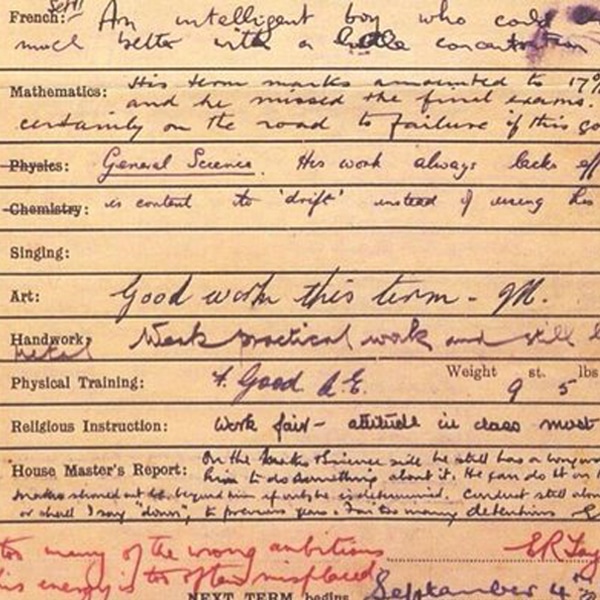 French: An intelligent boy who could
much better with a little concentration
Mathematics: His term marks amounted to 17%
and he missed the final exams.
certainly on the road to failure if this go
Physics: General Science. His work always lacks eff
Chemistry: is content to 'drift' instead of using his
Singing:
Art: Good work this term - JM.
Handwork: Weak practical work and still
Metal
Physical Training: F. Good A.E. Weight 9 st. 5 lbs
Religious Instruction: Work fair - attitude in class most
House Master's Report: On the Maths & Science side he still has a long way
him to do something about it. He can do it
marks should not be beyond him if only he is determined. Conduct still
or shall I say "down", to previous years. Far too many detentions
too many of the wrong ambitions
his energy is too often misplaced
NEXT TERM begins September 4th